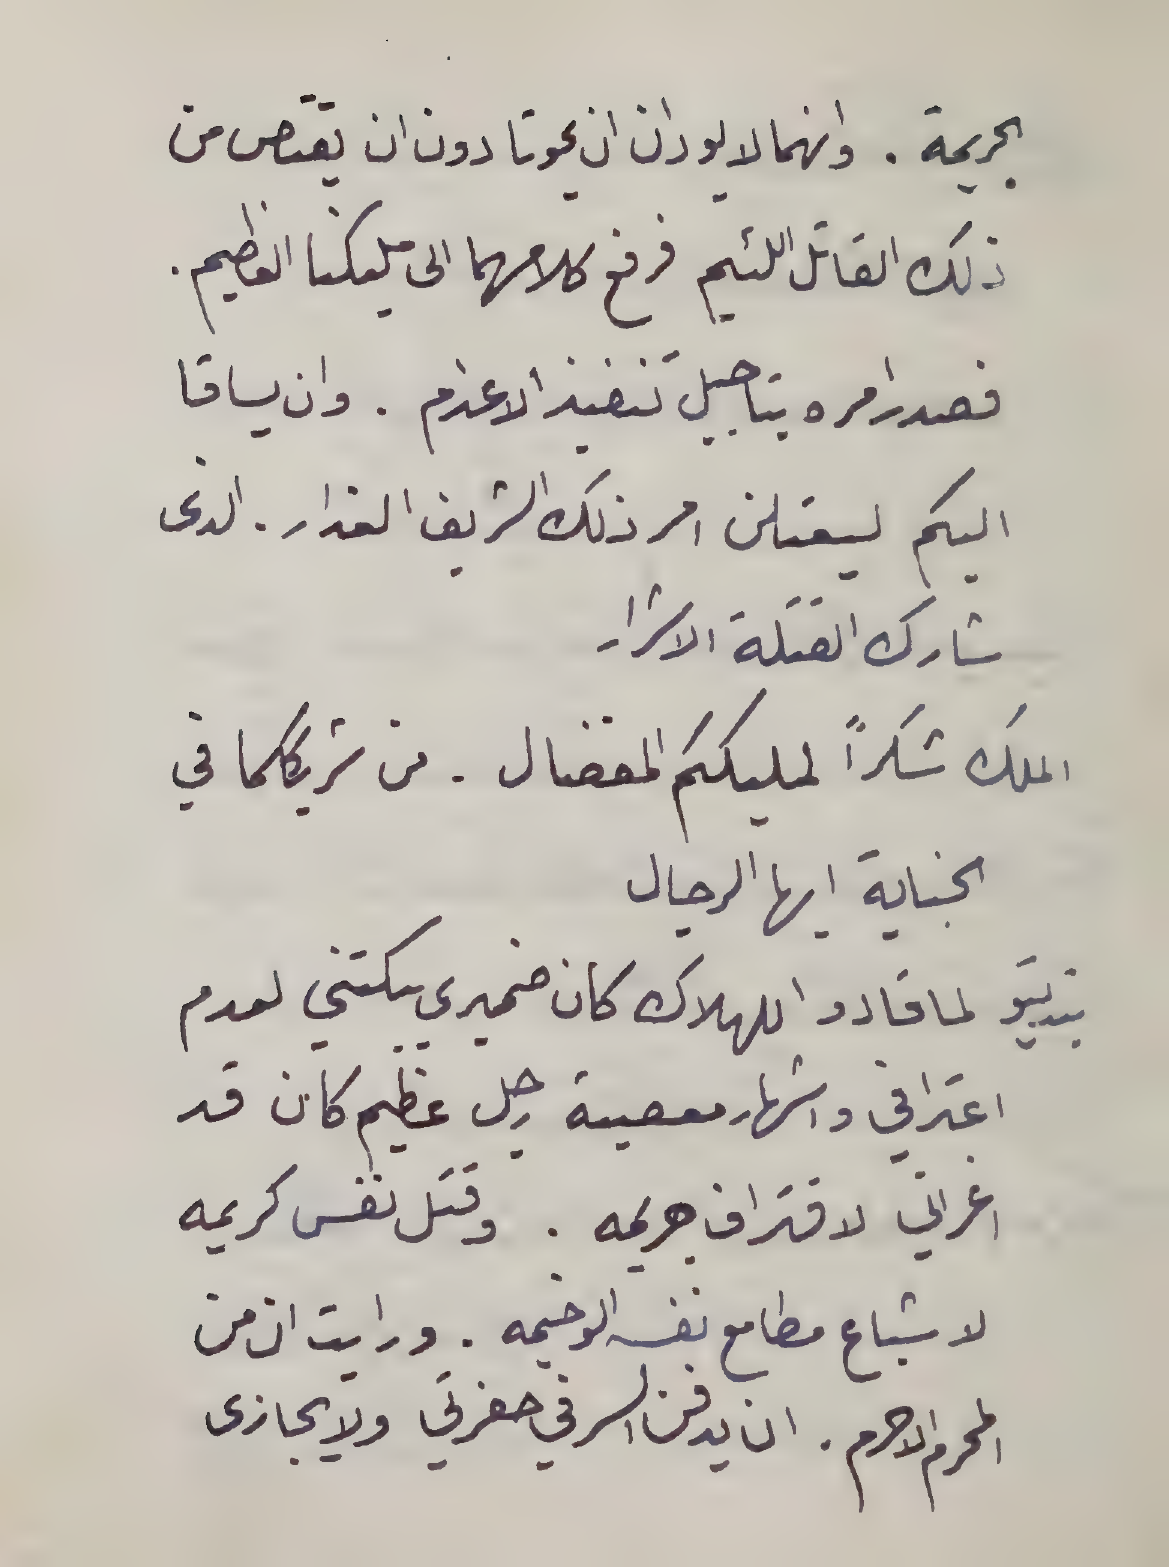 بجريمة . وانهما لا يودان ان يموتا دون ان يقتص من
ذلك القاتل اللئيم فرفع كلامهما الى مليكنا العظيم .
فصدر امره بتاجيل تنفيذ الاعدام . وان يساقا
اليكم ليعتلن امر ذلك الشريف الغدار . الذى
شارك القتلة الاشرار
الملك شكراً لمليككم المفضال . من شريككما في
الجناية ايها الرجال
بتدبيّو لما قادو اللهلاك كان ضميرى يبكتني لعدم
اعترافي واشهار معصية رجل عظيم كان قد
اغراني لاقتراف جريمه . وقتل نفس كريمه
لاشباع مطامع نفسه الوخيمه . ورايت ان من
المحرم الاحرم . ان يدفن السر في حفرتي ولا يجازى